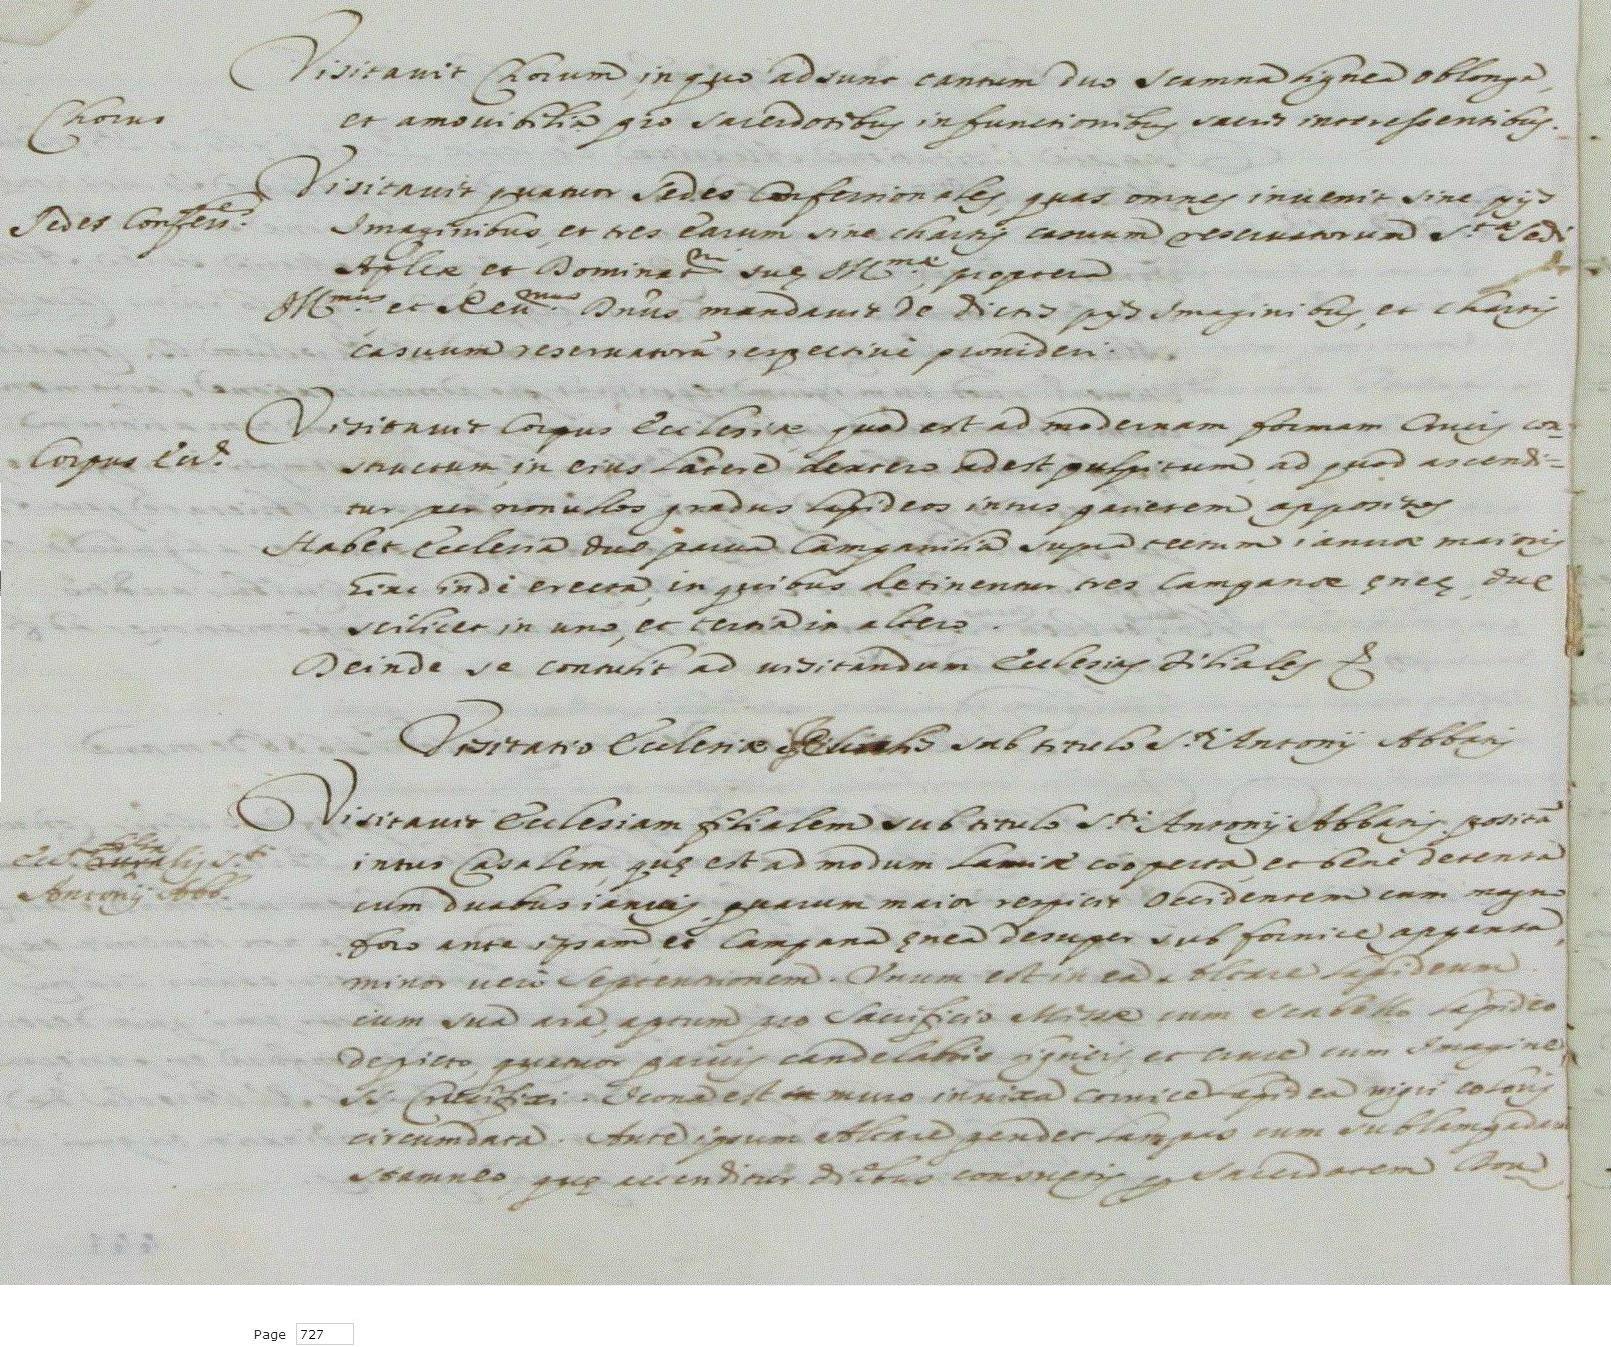 Visitauit Chorum, in quo adsunt tantum duo scamna lignea oblonga,
Chorus
et amouibilia pro sacerdotibus in functionibus sacris interessentibus.
Visitauit quatuor Sedes Confessionales, quas omnes inuenit sine pijs
Sedes Confess.
Imaginibus, et tres earum sine chartis casuum reseruatorum S.tæ Sedi
Aplicæ et Dominat.ni suę Ill.mæ, propterea
Ill.mus et Reu.mus Dnus mandauit de dictis pijs Imaginibus, et chartis
casuum reseruatorũ respectiuè prouideri.
Visitauit Corpus Ecclesiæ, quod est ad modernam formam Crucis con=
Corpus Eccl.æ
structum, in eius latere dextero adest pulpitum, ad quod ascendi=
tur per nonullos gradus lapideos intus parietem appositos
Habet Ecclesia duo parua Campanilia supra tectum ianuæ maioris
hinc indè erecta, in quibus detinentur tres Campanæ ęneę, duę
scilicet in uno, et tertia in altero.
Deinde se contulit ad uisitandum Ecclesias filiales &
Visitatio Ecclesiæ sub titulo S.ti Antonij Abbatis
Visitauit Ecclesiam filialem sub titulo S.ti Antonij Abbatis positã
Eccl. filialis S.ti
intus Casalem, quę est ad modum Lamiæ cooperta, et benè detenta
Antonij Abb.
cum duabus ianuis, quarum maior respicit Occidentem cum magno
foro ante ipsam et Campana ęnea desuper sub fornice appensa,
minor uerò Septentrionem. Vnum est in ea Altare lapideum
cum sua ara, aptum pro Sacrificio Missæ cum scabello lapideo
depicto, quatuor paruis candelabris ligneis, et cruce cum Imagine
SS. Crucifixi. Icona est in muro innixa cornice lapidea nigri coloris
circumdata. Ante ipsum Altare pendet lampas cum sublampadam
stamneo, quę accenditur diebus consuetis per Sacerdotem Don
Page 727